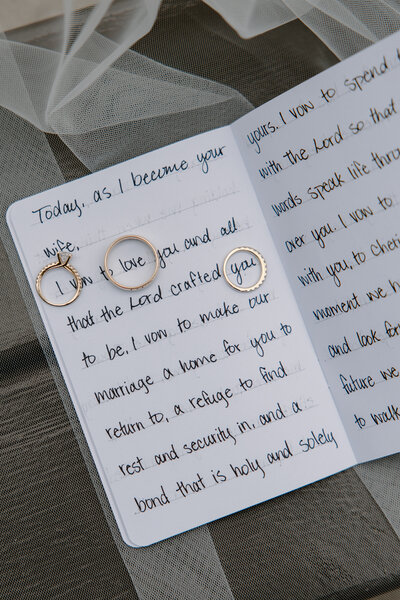 Today, as I become your
wife,
I vow to love you and all
that the Lord crafted you
to be. I vow to make our
marriage a home for you to
return to, a refuge to find
rest and security in, and a
bond that is holy and solely
yours. I vow to spend
with the Lord so that
words speak life throu
over you. I vow to
with you, to cheri
moment we h
and look for
future we
to walk